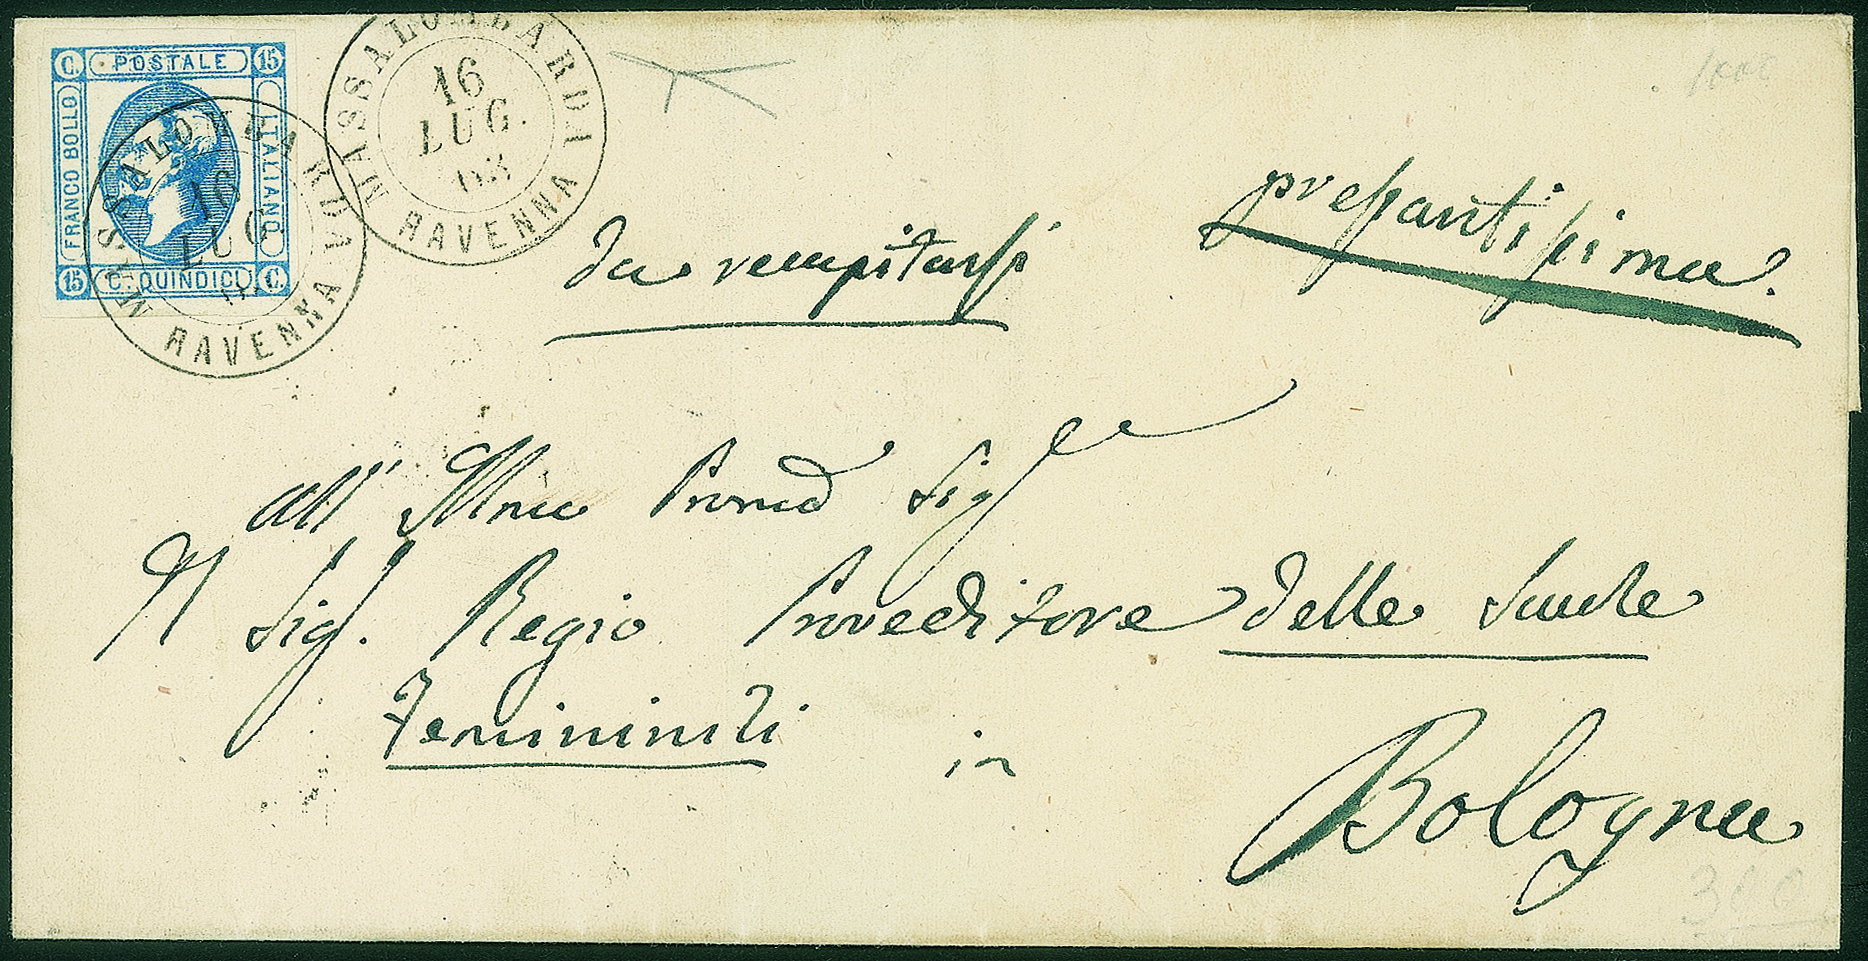 C POSTALE 15
FRANCO BOLLO
ITALIANO
15 C. QUINDICI C
MASSALOMBARDA
16
LUG
RAVENNA
MASSALOMBARDA
16
LUG.
63
RAVENNA
da recapitarsi
pressantissima
all' Illmo Sig
Al Sig. Regio Proveditore delle Scuole
Feminili
in
Bologna
300